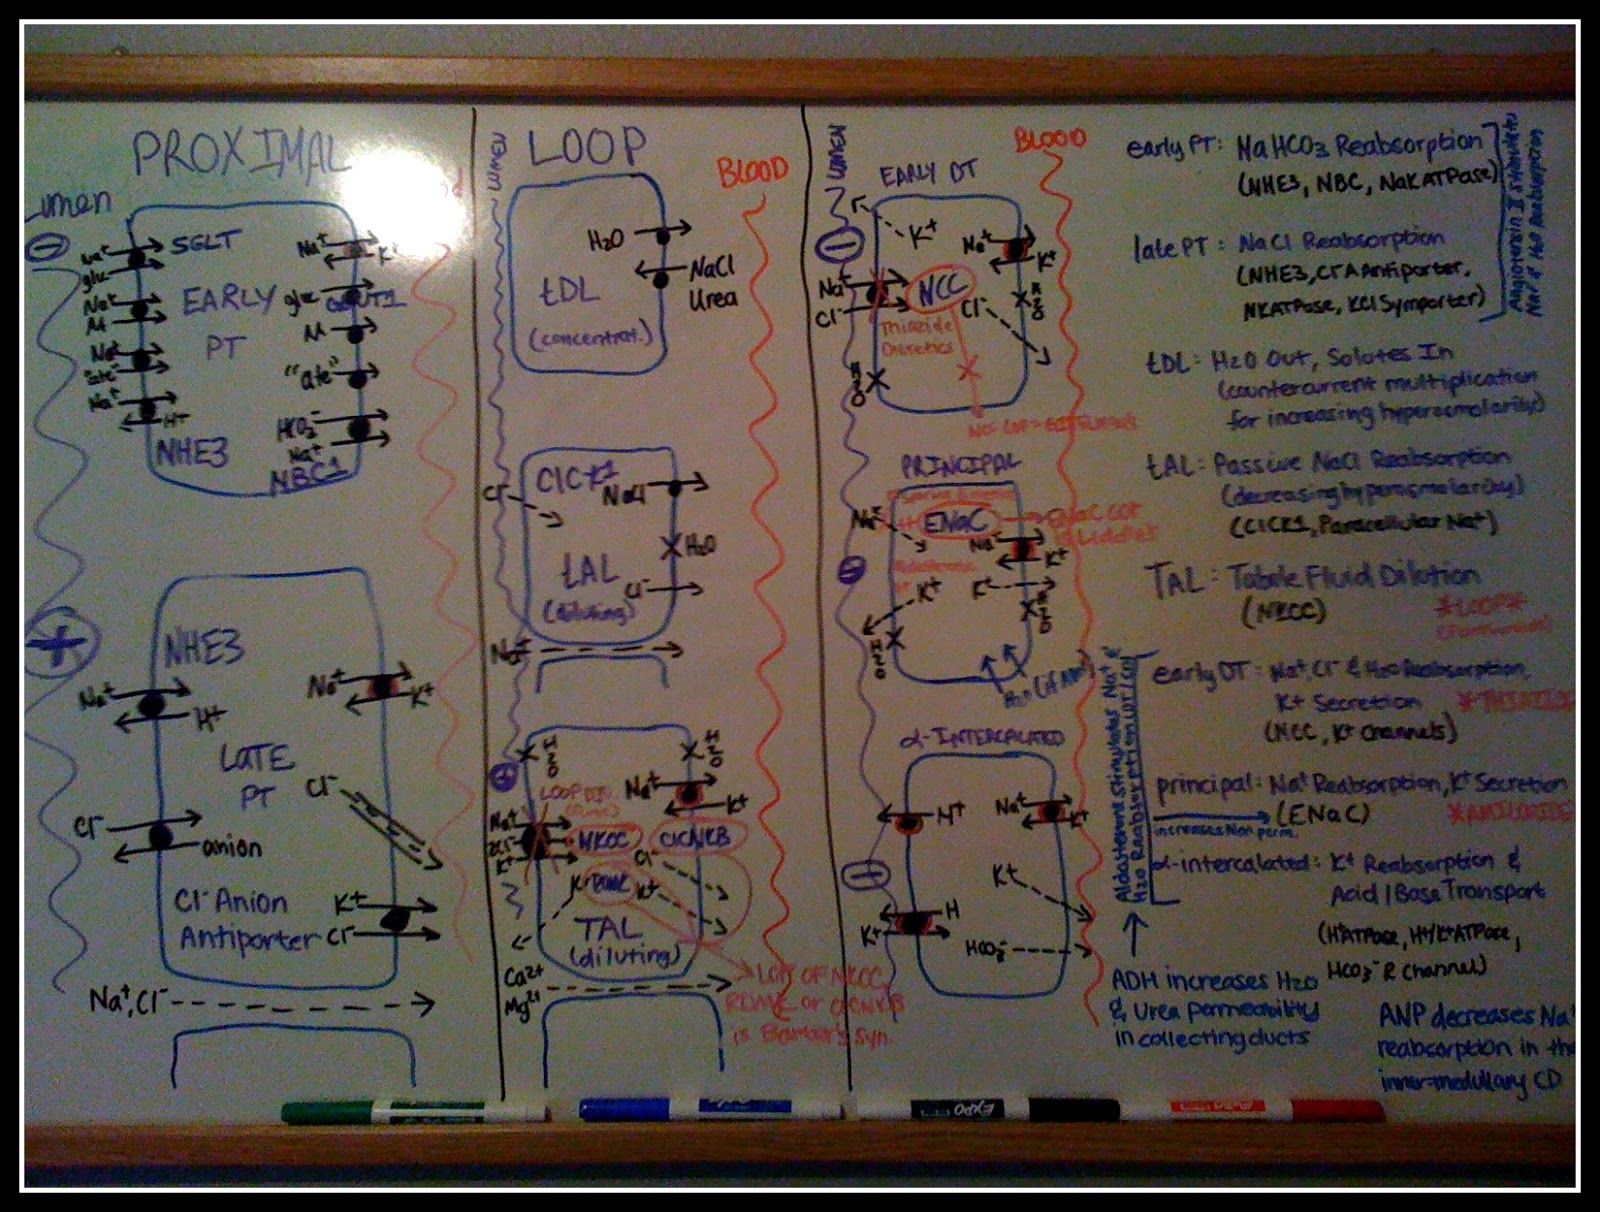 PROXIMAL
Lumen
SGLT
Na+
glu
EARLY
PT
Na+
K+
glu
Na+
AA
AA
Na+
"ate"
"ate"
Na+
H+
HCO3-
Na+
NHE3
NBC1
NHE3
Na+
H+
Na+
K+
LATE
PT
Cl-
Cl-
anion
Cl- Anion
Antiporter
K+
Cl-
Na+, Cl-
LUMEN
LOOP
BLOOD
H2O
NaCl
Urea
tDL
(concentrat.)
Cl-
ClCK1
NaCl
H2O
tAL
Cl-
(diluting)
Na+
H2O
H2O
LOOP DIU.
Na+
K+
Na+
2Cl-
K+
NKCC
ClCNKB
Cl-
K+
ROMK
K+
TAL
(diluting)
Ca2+
Mg2+
LOF OF NKCC,
ROMK OR ClCNKB
is Bartter's syn.
LUMEN
BLOOD
EARLY DT
K+
Na+
K+
Na+
Cl-
NCC
Cl-
H2O
Thiazide
Diuretics
H2O
PRINCIPAL
Na+
ENaC
ENaC GOF
is Liddle's
Na+
K+
K+
K+
H2O
H2O
H2O (if ADH)
α-INTERCALATED
H+
Na+
K+
K+
H
K+
HCO3-
early PT: NaHCO3 Reabsorption
(NHE3, NBC, NaKATPase)
late PT: NaCl Reabsorption
(NHE3, Cl-A Antiporter,
NKATPase, KCl Symporter)
Angiotensin II stimulates
Na+ & H2O Reabsorption
tDL: H2O Out, Solutes In
(countercurrent multiplication
for increasing hyperosmolarity)
tAL: Passive NaCl Reabsorption
(decreasing hyperosmolarity)
(ClCK1, Paracellular Na+)
TAL: Tubule Fluid Dilution
(NKCC)
*LOOP*
early DT: Na+, Cl- & H2O Reabsorption,
K+ Secretion
*THIAZIDE
(NCC, K+ Channels)
principal: Na+ Reabsorption, K+ Secretion
(ENaC)
*AMILORIDE
increases Na+ perm.
α-intercalated: K+ Reabsorption &
Acid/Base Transport
(H+ATPase, H+/K+ATPase,
HCO3- R Channel)
Aldosterone stimulates Na+ &
H2O Reabsorption
ADH increases H2O
& Urea permeability
in collecting ducts
ANP decreases Na+
reabsorption in the
inner-medullary CD
EXPO